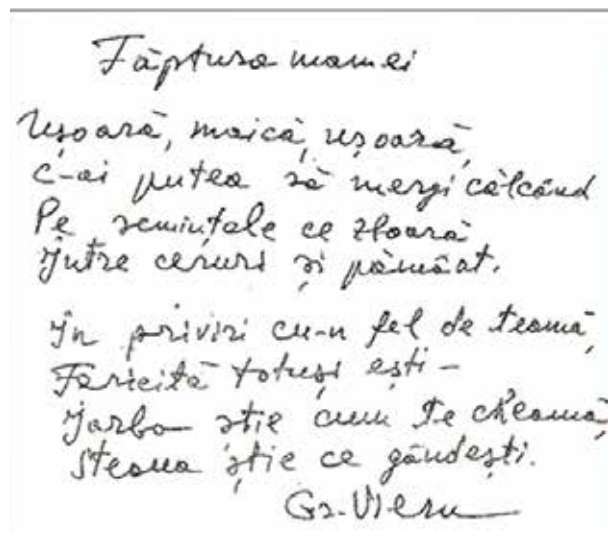 Făptura mamei
Ușoară, maică, ușoară,
C-ai putea să mergi călcând
Pe semințele ce zboară
Între ceruri și pământ.
În priviri cu-n fel de teamă,
Fericită totuși ești –
Iarba știe cum te cheamă,
Steaua știe ce gândești.
Gr. Vieru